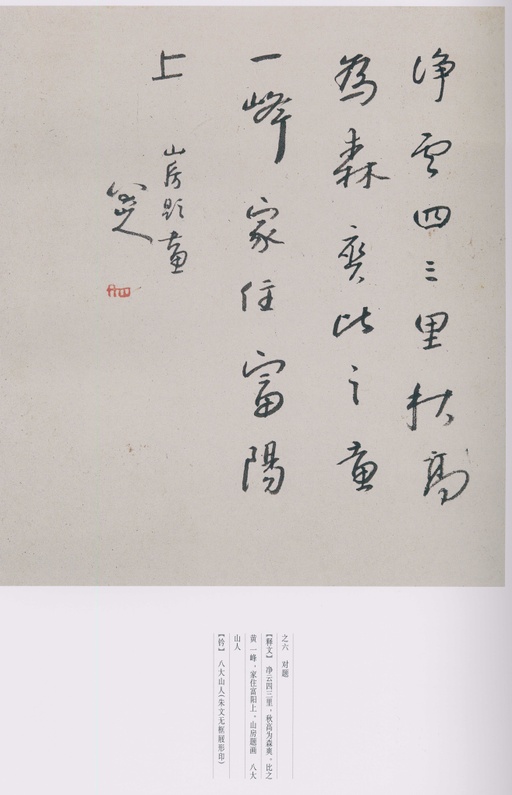 净雲四三里秋高
為森爽比之黃
一峰家住富陽
上 山房題畫
八大山人
之六 对题
【释文】 净云四三里，秋高为森爽。比之
黄一峰，家住富阳上。山房题画 八大
山人
【钤】 八大山人（朱文无框屐形印）